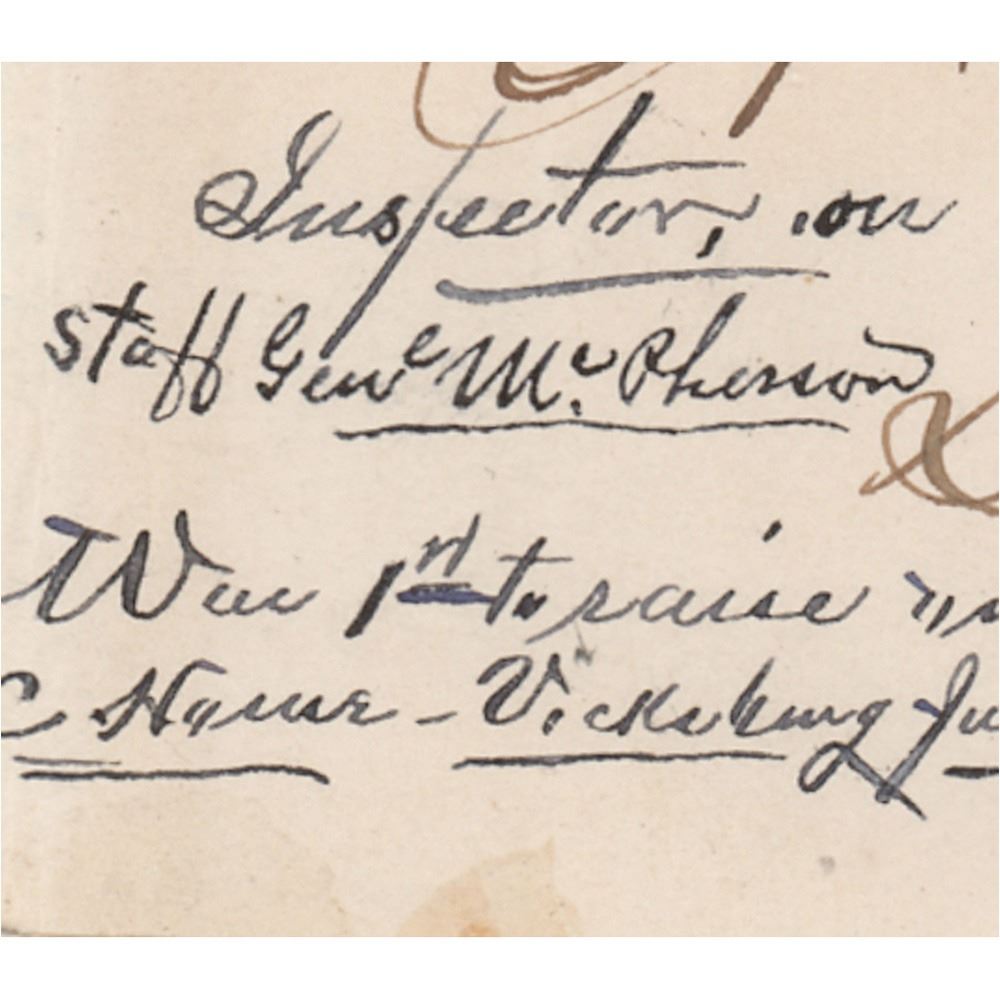 Inspector, on
staff Genl Mc Pherson
Was 1st to raise
C House - Vicksburg Ju